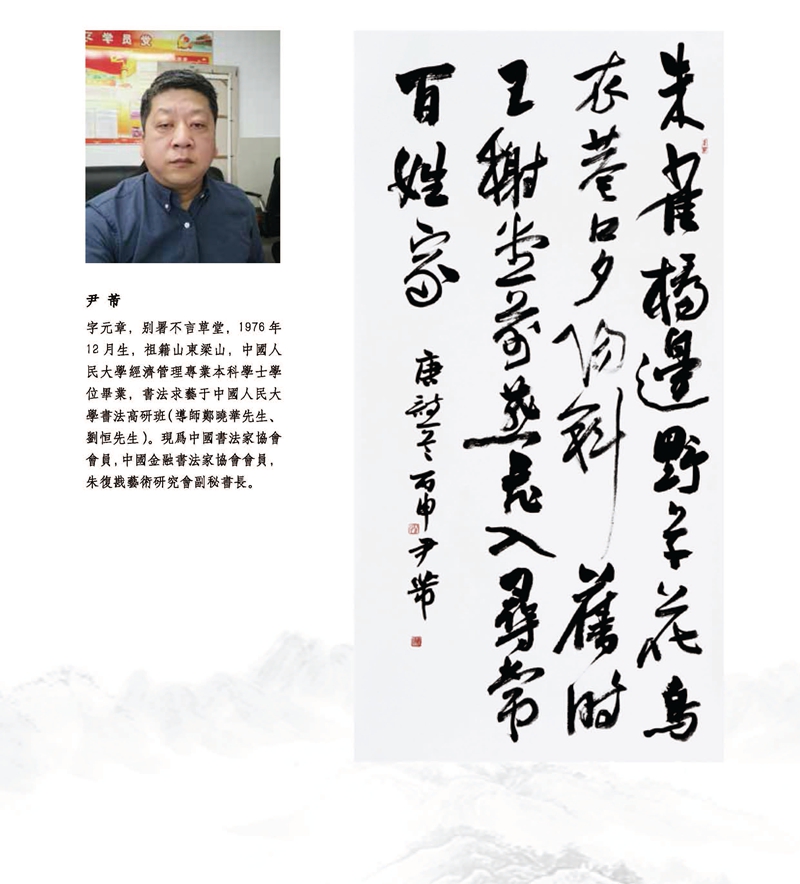 学员党
尹芾
字元章，别署不言草堂，1976年
12月生，祖籍山東梁山，中國人
民大學經濟管理專業本科學士學
位畢業，書法求藝于中國人民大
學書法高研班（導師鄭曉華先生、
劉恒先生）。現爲中國書法家協會
會員，中國金融書法家協會會員，
朱復戡藝術研究會副秘書長。
朱雀橋邊野草花烏
衣巷口夕陽斜舊時
王榭堂前燕飛入尋常
百姓家
唐詩一首丙申尹芾